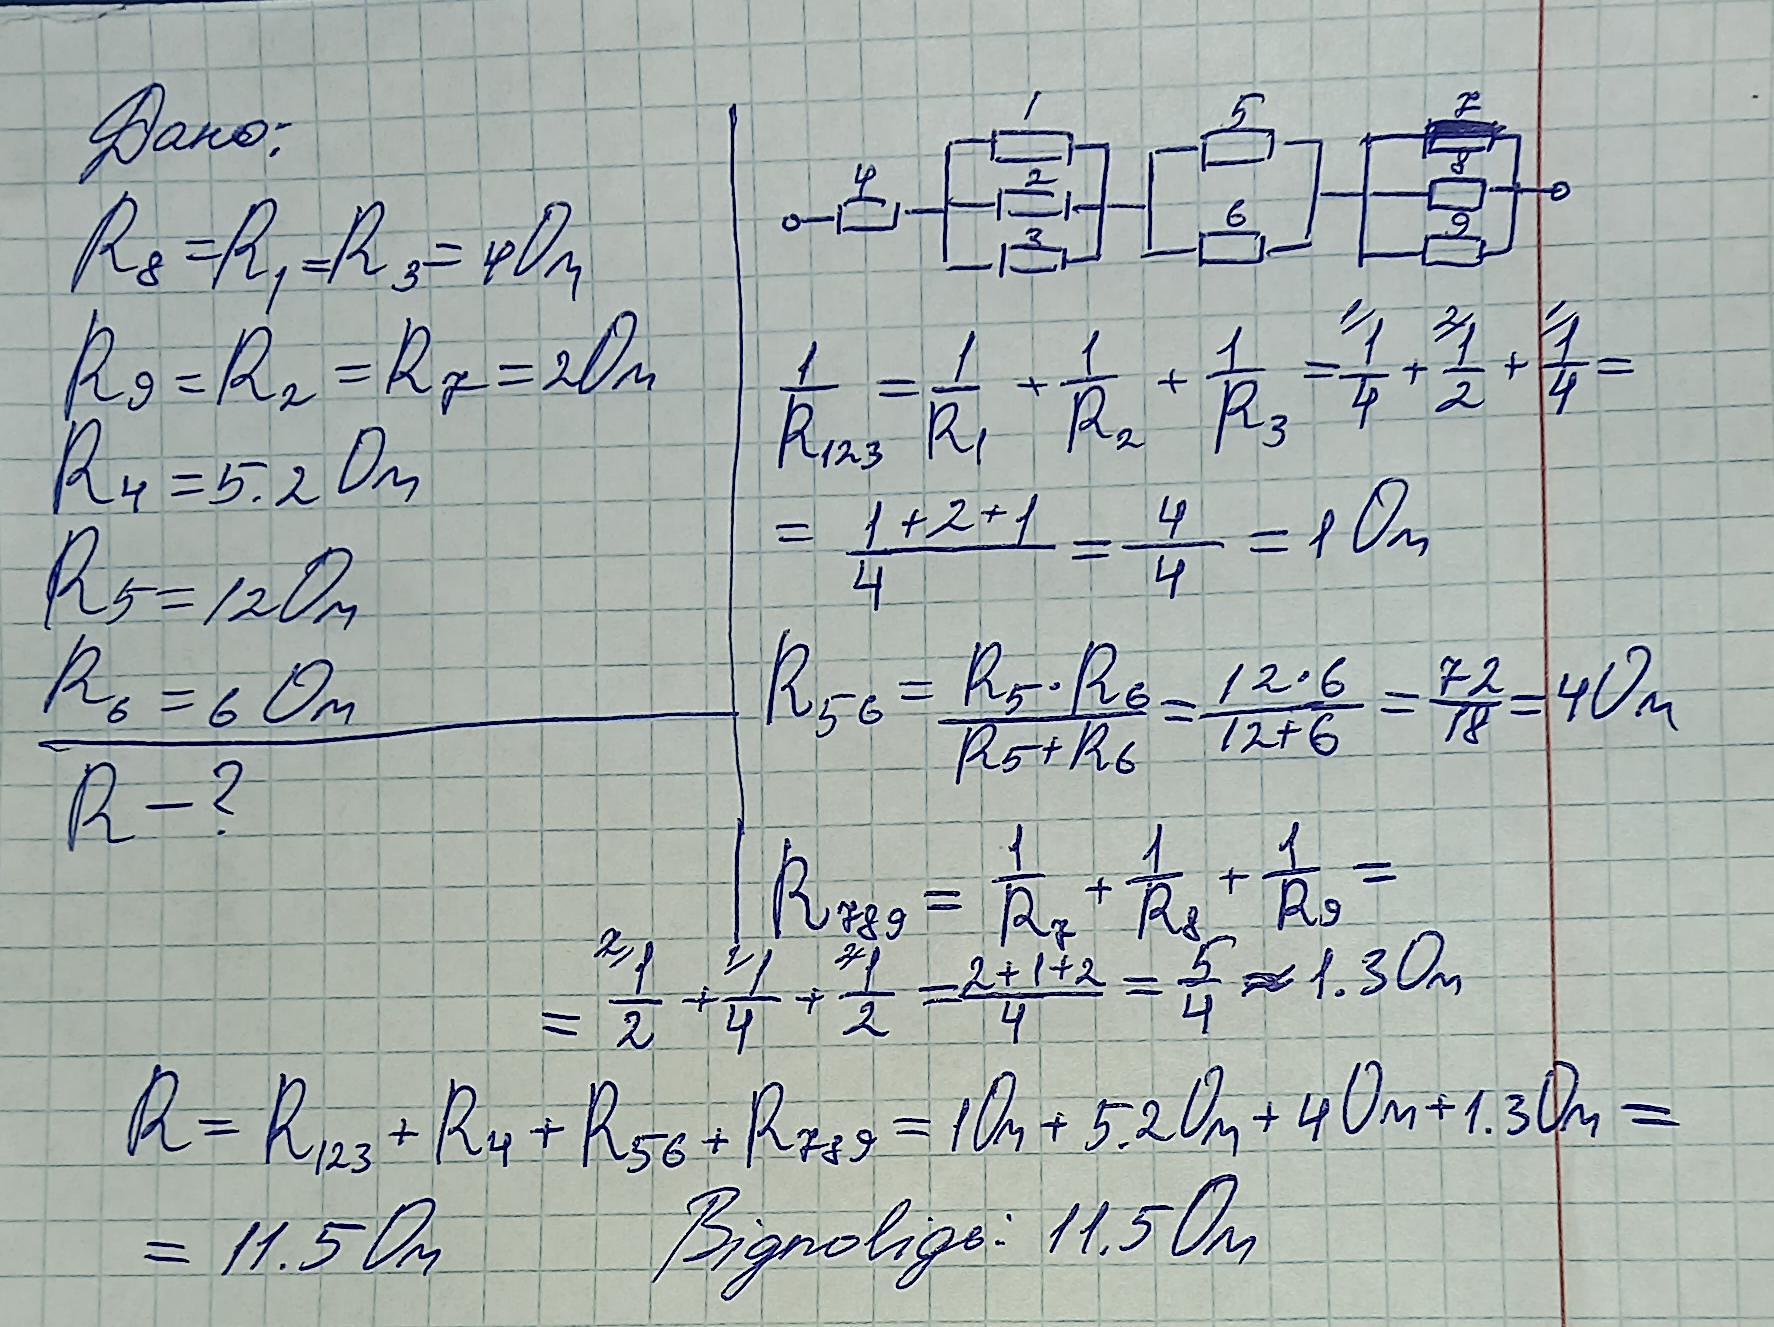 Дано:
R₈ = R₁ = R₃ = 4 Ом
R₉ = R₂ = R₇ = 2 Ом
R₄ = 5.2 Ом
R₅ = 12 Ом
R₆ = 6 Ом
R – ?
1 5 7
4 2 8
3 6 9
1/R₁₂₃ = 1/R₁ + 1/R₂ + 1/R₃ = ¹⁾1/4 + ²⁾1/2 + ¹⁾1/4 =
= (1+2+1)/4 = 4/4 = 1 Ом
R₅₆ = (R₅·R₆)/(R₅+R₆) = (12·6)/(12+6) = 72/18 = 4 Ом
R₇₈₉ = 1/R₇ + 1/R₈ + 1/R₉ =
= ²⁾1/2 + ¹⁾1/4 + ²⁾1/2 = (2+1+2)/4 = 5/4 ≈ 1.3 Ом
R = R₁₂₃ + R₄ + R₅₆ + R₇₈₉ = 1 Ом + 5.2 Ом + 4 Ом + 1.3 Ом =
= 11.5 Ом Відповідь: 11.5 Ом